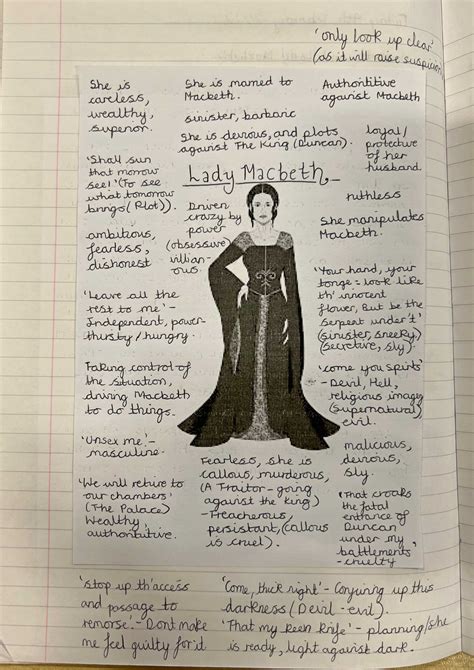 'only look up clear'
(as it will raise suspicion
She is
careless,
wealthy,
superior.
She is married to
Macbeth.
sinister, barbaric
She is devious, and plots
against The King (Duncan).
Authoritive
against Macbeth
loyal/
protective
of her
husband
Lady Macbeth
'Shall sun
that morrow
see!' (To see
what tomorrow
brings (Plot)).
ambitious,
fearless,
dishonest
Driven
crazy by
power
(obsessive)
villian-
ous.
ruthless
She manipulates
Macbeth.
'Your hand, your
tonge = look like
th' innocent
flower, But be the
serpent under't'
(sinister, sneeky)
(secretive, sly.
'Leave all the
rest to me' -
Independent, power-
thirsty/hungry.
Taking control of
the situation,
driving Macbeth
to do things.
'come you spirits'
- Devil, Hell,
religious imagery
(supernatural)
evil.
'Unsex me' -
masculine.
'We will retire to
our chambers'
(The Palace)
Wealthy,
authoritive.
Fearless, she is
callous, murderous,
(A Traitor - going
against the king)
- Treacherous,
persistant, (callous
is cruel).
malicious,
devious,
sly.
'That croaks
the fatal
entrance of
Duncan
under my
battlements'
- cruelty
'stop up th'access
and passage to
remorse' - Dont make
me feel guilty for'd
'Come, thick night' - Conjuring up this
darkness (Devil - evil).
'That my keen knife' - planning/she
is ready, light against dark.